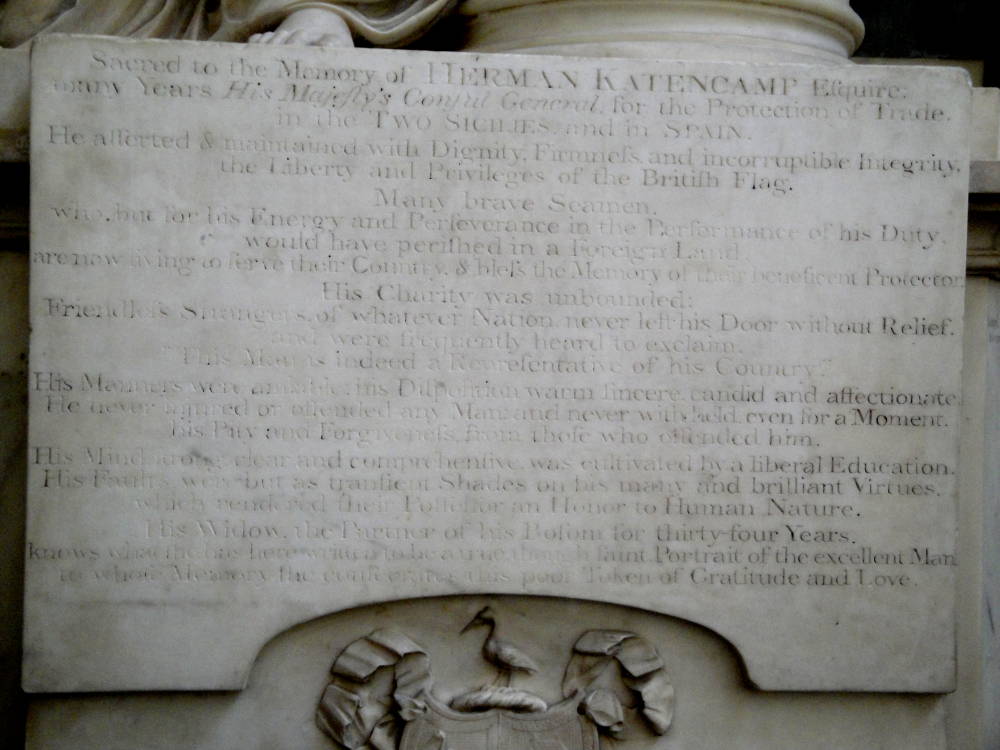 Sacred to the Memory of HERMAN KATENCAMP Eſquire;
many Years His Majeſty's Conſul General, for the Protection of Trade,
in the TWO SICILIES, and in SPAIN.
He aſſerted & maintained with Dignity, Firmneſs, and incorruptible Integrity,
the Liberty and Privileges of the Britiſh Flag.
Many brave Seamen,
who, but for his Energy and Perſeverance in the Performance of his Duty,
would have periſhed in a Foreign Land,
are now living to ſerve their Country, & bleſs the Memory of their beneficent Protector.
His Charity was unbounded:
Friendleſs Strangers, of whatever Nation, never left his Door without Relief,
and were frequently heard to exclaim,
"This Man is indeed a Repreſentative of his Country."
His Manners were amiable, his Diſpoſition warm ſincere, candid and affectionate.
He never injured or offended any Man; and never withheld, even for a Moment,
his Pity and Forgiveneſs, from thoſe who offended him.
His Mind ſtrong, clear and comprehenſive, was cultivated by a liberal Education.
His Faults, were but as tranſient Shades on his many and brilliant Virtues,
which rendered their Poſſeſſor an Honor to Human Nature.
His Widow, the Partner of his Boſom for thirty-four Years,
knows what ſhe has here written to be a true, though faint Portrait of the excellent Man
to whoſe Memory ſhe conſecrates this poor Token of Gratitude and Love.